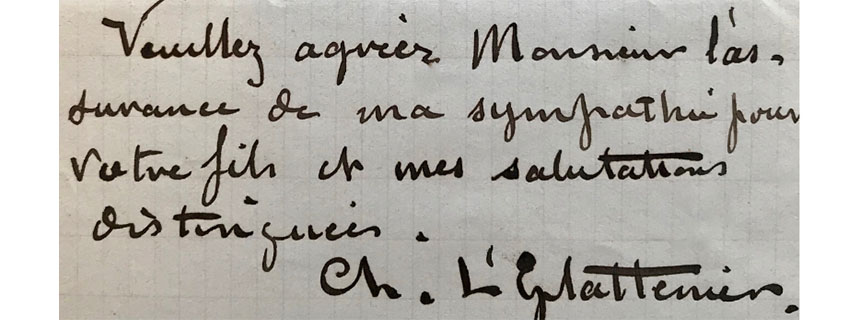 Veuillez agréer Monsieur l'as-
surance de ma sympathie pour
votre fils et mes salutations
distinguées.
Ch. L'Eplattenier.